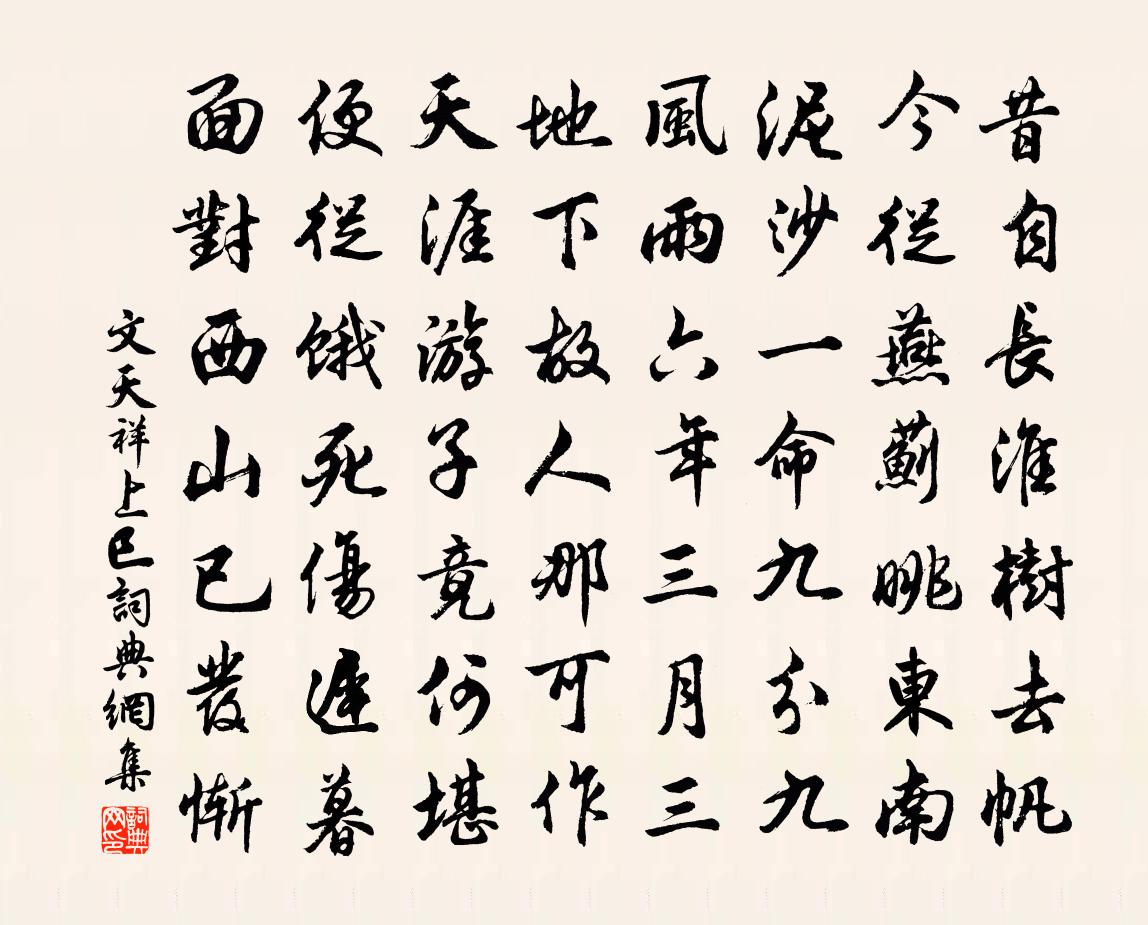 昔自長淮樹去帆
今從燕薊眺東南
泥沙一命九分九
風雨六年三月三
地下故人那可作
天涯游子竟何堪
便從餓死傷遲暮
面對西山已發慚
文天祥上巳詞典網集
詞典网印